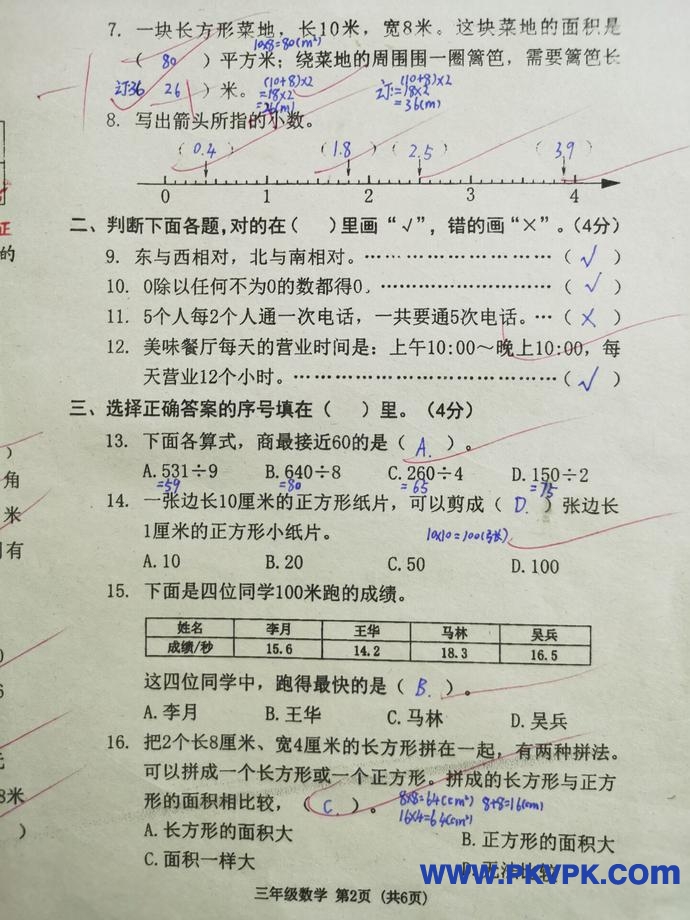 7. 一块长方形菜地，长10米，宽8米。这块菜地的面积是
10×8=80(m²)
（ 80 ）平方米；绕菜地的周围围一圈篱笆，需要篱笆长
订36 26 ）米。 (10+8)×2 =18×2 =26(m) 订:(10+8)×2 =18×2 =36(m)
8. 写出箭头所指的小数。
（0.4） （1.8）（2.5） （3.9）
0 1 2 3 4
二、判断下面各题，对的在（ ）里画“√”，错的画“×”。（4分）
9. 东与西相对，北与南相对。…………………………（√）
10. 0除以任何不为0的数都得0。………………………（√）
11. 5个人每2个人通一次电话，一共要通5次电话。…（×）
12. 美味餐厅每天的营业时间是：上午10:00～晚上10:00，每
天营业12个小时。……………………………………（√）
三、选择正确答案的序号填在（ ）里。（4分）
13. 下面各算式，商最接近60的是（ A. ）。
A.531÷9 B.640÷8 C.260÷4 D.150÷2
=59 =80 =65 =75
14. 一张边长10厘米的正方形纸片，可以剪成（ D. ）张边长
1厘米的正方形小纸片。 10×10=100(张)
A.10 B.20 C.50 D.100
15. 下面是四位同学100米跑的成绩。
姓名 李月 王华 马林 吴兵
成绩/秒 15.6 14.2 18.3 16.5
这四位同学中，跑得最快的是（ B. ）。
A.李月 B.王华 C.马林 D.吴兵
16. 把2个长8厘米、宽4厘米的长方形拼在一起，有两种拼法。
可以拼成一个长方形或一个正方形。拼成的长方形与正方
形的面积相比较，（ C. ）。 8×8=64(cm²) 8+8=16(cm)
16×4=64(cm²)
A.长方形的面积大 B.正方形的面积大
C.面积一样大 D.无法比较
www.PKVPK.com
三年级数学 第2页（共6页）
正
的
）
角
米
有
8米
）